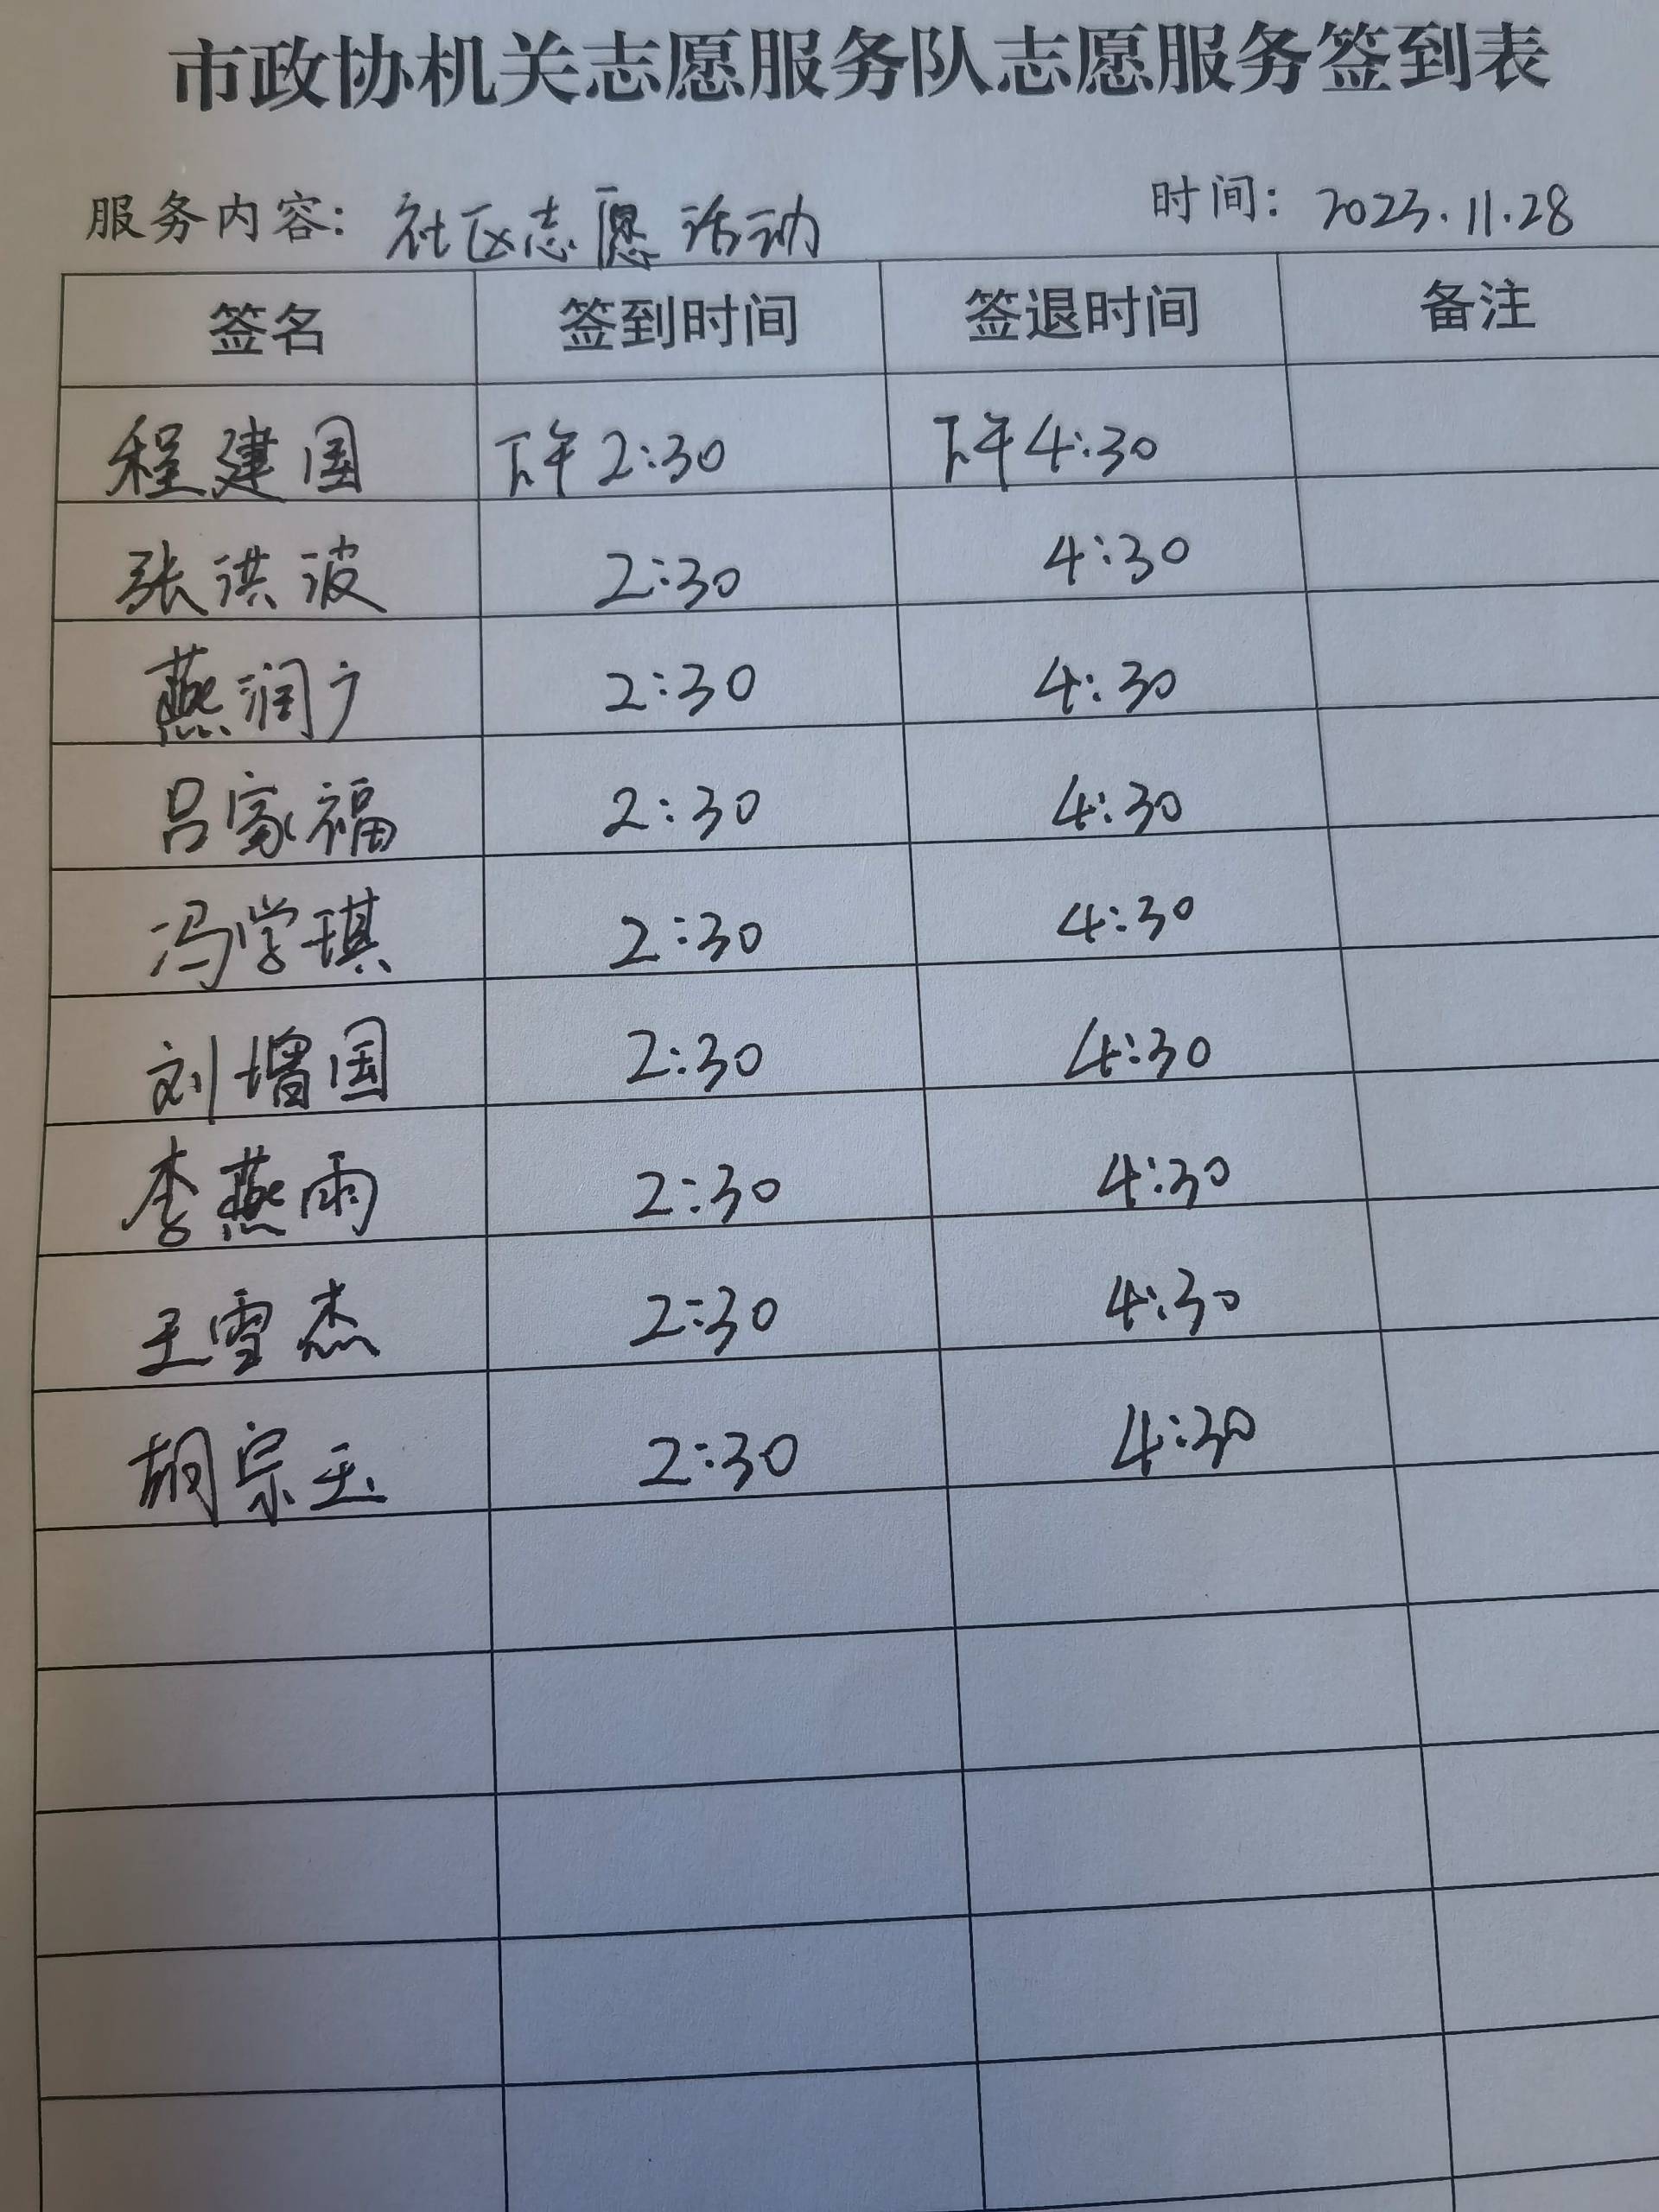 市政协机关志愿服务队志愿服务签到表
服务内容: 社区志愿活动 时间: 2023.11.28
签名 签到时间 签退时间 备注
程建国 下午2:30 下午4:30
张洪波 2:30 4:30
燕润广 2:30 4:30
吕家福 2:30 4:30
冯学琪 2:30 4:30
刘增国 2:30 4:30
李燕雨 2:30 4:30
王雪杰 2:30 4:30
胡宗玉 2:30 4:30